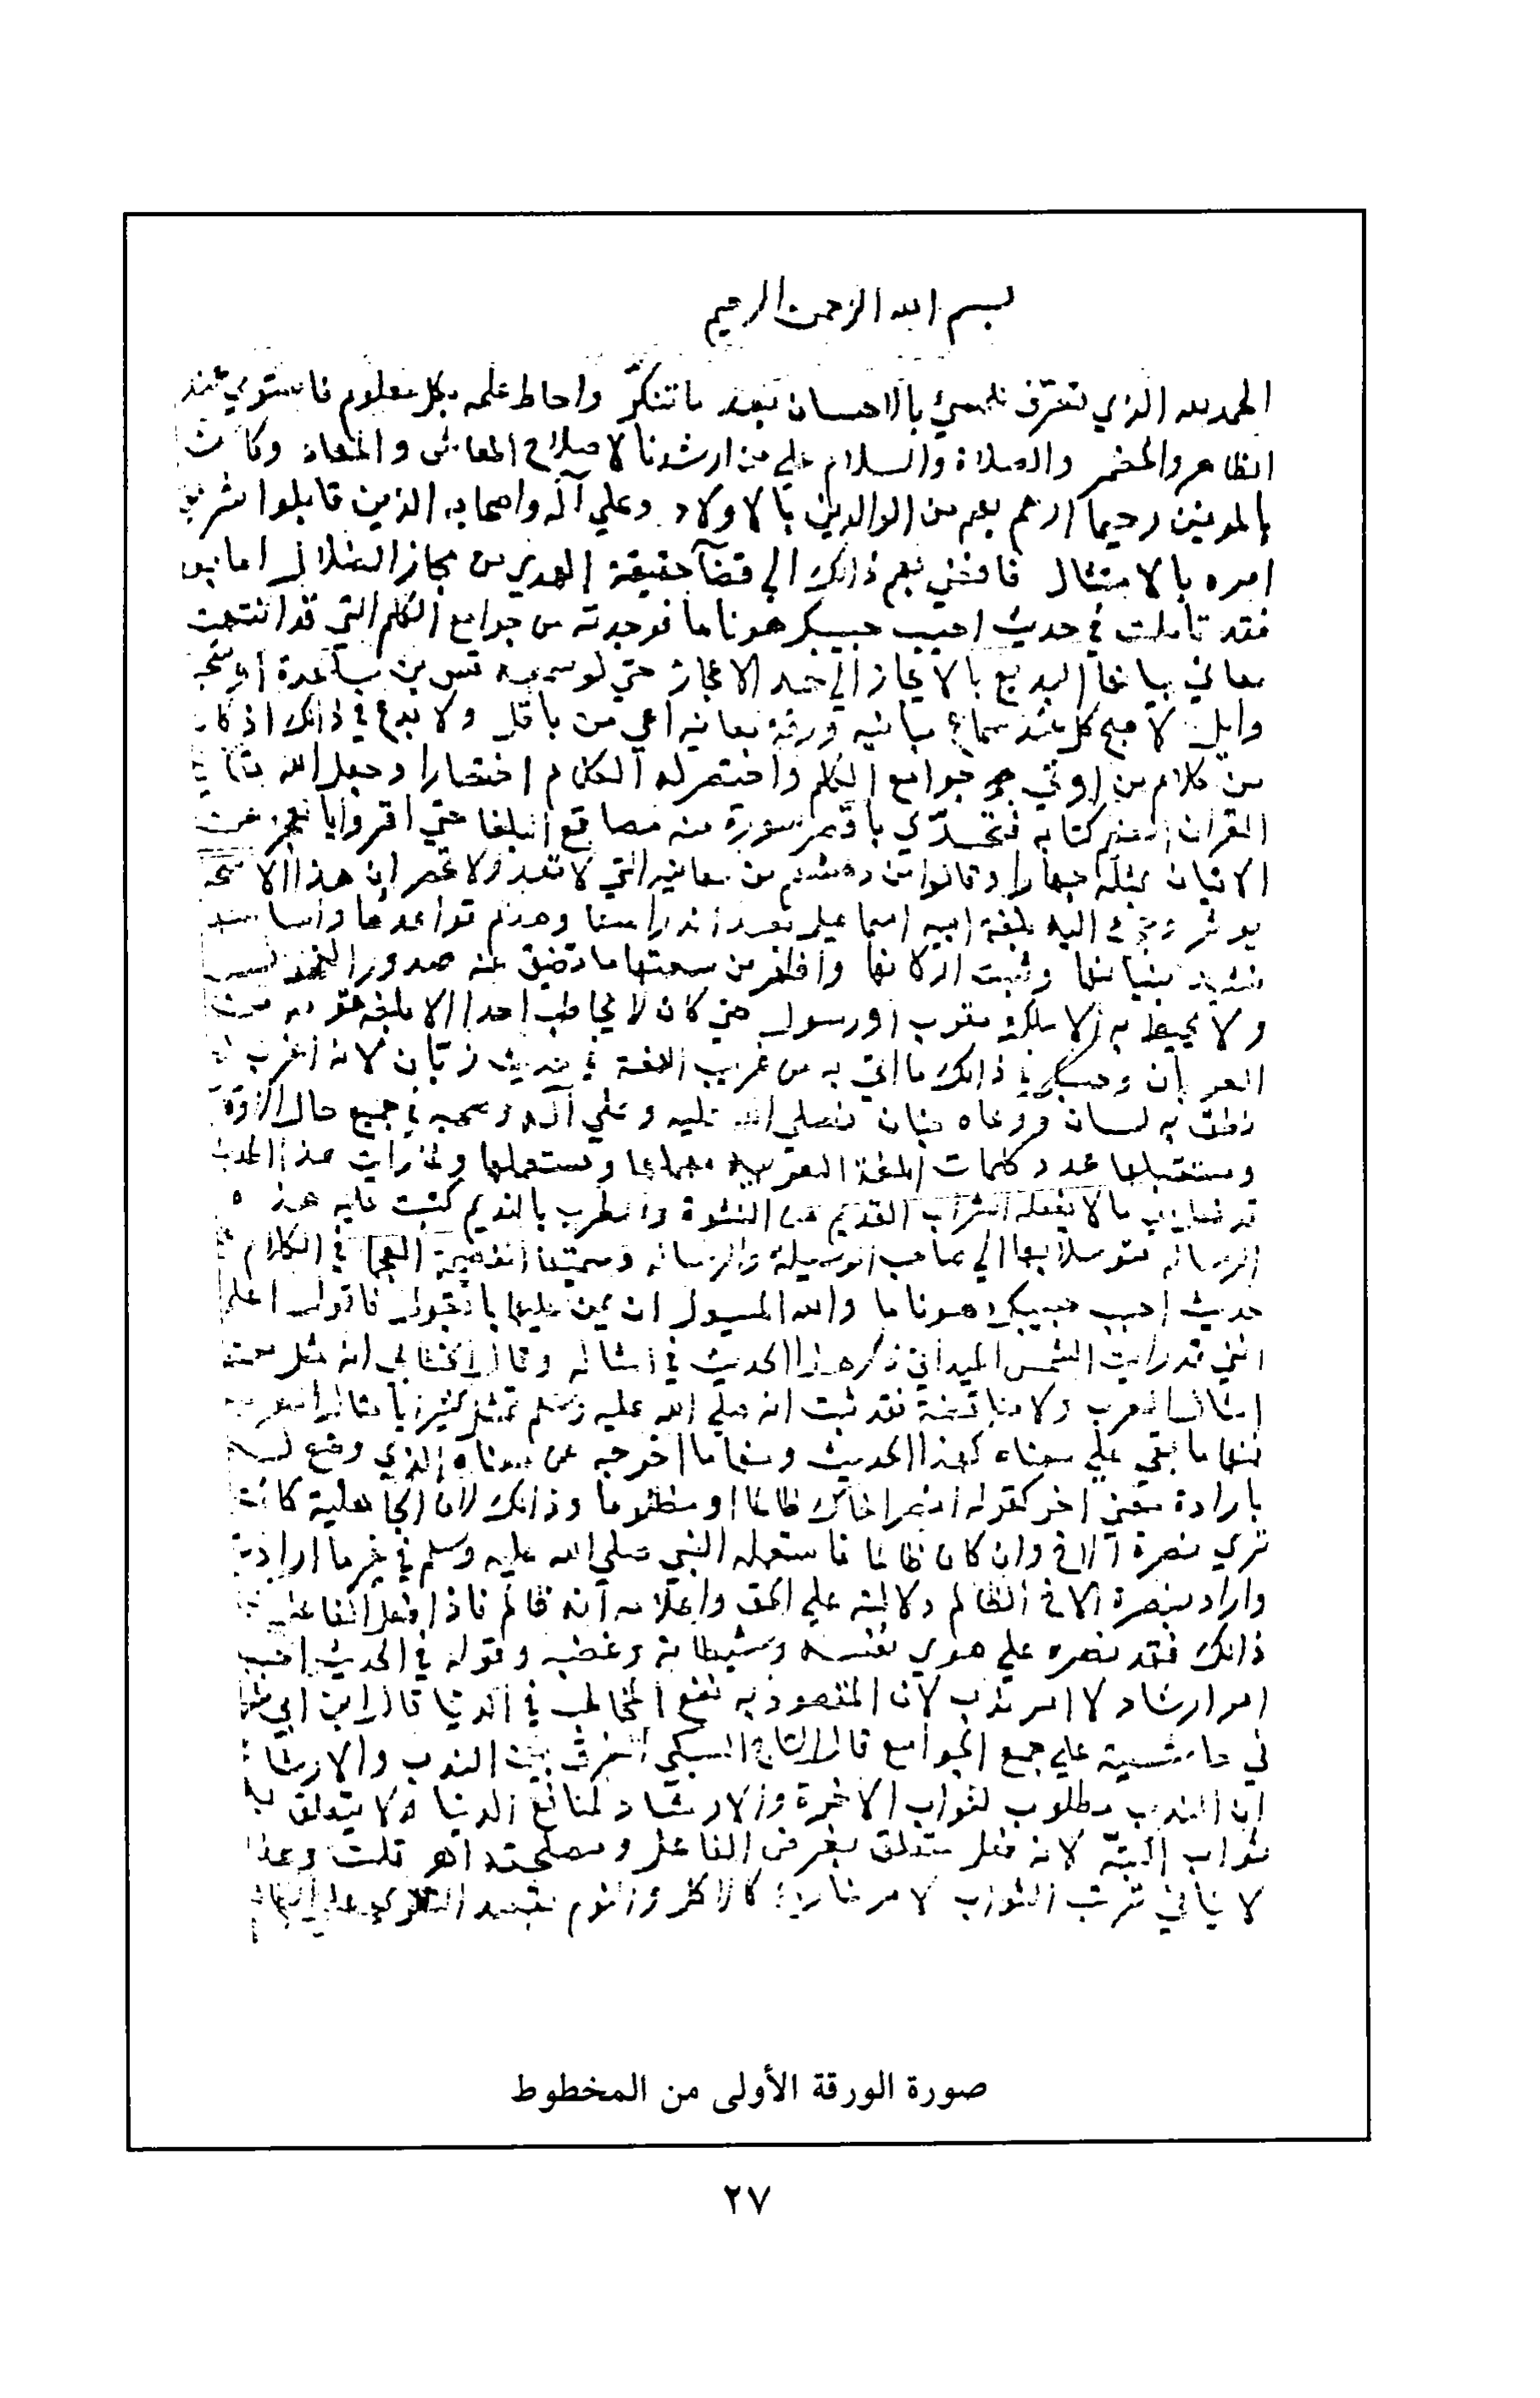 بسم الله الرحمن الرحيم
الحمد لله الذي تعرّف للمسئ بالاحسان بعد ما تنكرّ واحاط علمه بكل معلوم فاستوي عند
الظاهر والمضمر والصلاة والسلام علي من ارشدنا لاصلاح المعاش والمعاد وكانت
بالمومنين رحيما ارحم بهم من الوالدين بالاولاد وعلي آله واصحابه الذين قابلوا شريف
امره بالامتثال فافضي بهم ذالك الي قضآ حقيقة الهدي من مجاز الضلال اما بعد
فقد تاملت في حديث احبب حبيبك هونا ما فوجدته من جوامع الكلم التي قد انتهت
معاني بيانها البديع بالايجاز الي حد الاعجاز حتي لو سمعه قس بن ساعدة او سحبا
وايل لاصبح كل عند سماع مبانيه ورقة معانيه اعي من باقل ولا بدع في ذالك اذ كان
من كلام من اوتي جوامع الكلم واختصر له الكلام اختصارا وجعل الله
القران كتابه فتحدّي باقصر سورة منه مصاقع البلغا حتي اقروا بالعجز عن
الاتيان بمثله جهارا وقالوا من دهشتهم من معانيه التي لا تعد ولا تحصر ان هذا الا سحر
يوثر اليه بلغة ابيه اسماعيل بعد اندراسها وهدم قواعدها واساسها
فشيد بنيانها وثبت اركانها واظهر من سعتها ما تضيق عنه صدور
ولا يحيط به الا ملك مقرب او رسول حتي كان لا يخاطب احدا الا بلغة قومه من
العربان وحسبك في ذالك ما اتي به من غريب اللغة في حديث زبّان لانه اغرب ما
نطق به لسان ووعاه جنان فصلي الله عليه وعلي آله وصحبه في جميع حال الاوقات
ومستقبلها عدد كلمات اللغة العربية مهملها ومستعملها ولما رايت هذا الحديث
قد فعل بي ما لا يفعله الشراب القديم من النشوة والطرب بالنديم كتبت عليه هذه
الرسالة متوسلا بها الي صاحب الوسيلة والرسالة وسميتها الفصيحة العجما في الكلام علي
حديث احبب حبيبك هونا ما والله المسيول ان يمن عليها بالقبول فاقول اعلم
انني قد رايت الشمس الميداني ذكر هذا الحديث في امثاله وقال الخطابي انه مثل من
امثال العرب ولا مناقضة فقد ثبت انه صلي الله عليه وسلم تمثل كثيرا بامثال العرب
فمنها ما بقي علي معناه كهذا الحديث ومنها ما اخرجه عن معناه الذي وضع له
بارادة معني اخر كقوله انصر اخاك ظالما او مظلوما وذالك لان الجاهلية كانت
تري نصرة الاخ وان كان ظالما فاستعمله النبي صلي الله عليه وسلم في غير ما ارادت
واراد بنصرة الاخ الظالم دلالته علي الحق واعلامه انه ظالم فاذا فعل الفاعل
ذالك فقد نصره علي هوي نفسه وشيطانه وغضبه وقوله في الحديث احبب
امر ارشاد لا امر ندب لان المقصود به نفع المخاطب في الدنيا قال ابن ابي
في حاشيته علي جمع الجوامع قال التاج السبكي الفرق بين الندب والارشاد
ان الندب مطلوب لثواب الاخرة والارشاد لمنافع الدنيا ولا يتعلق به
ثواب البتّة لانه فعل متعلق بغرض الفاعل ومصلحته اهـ قلت وهذا
لا ينافي ترتب الثواب لامر كالاكل والنوم بقصد التقوي علي
صورة الورقة الأولى من المخطوط
٢٧